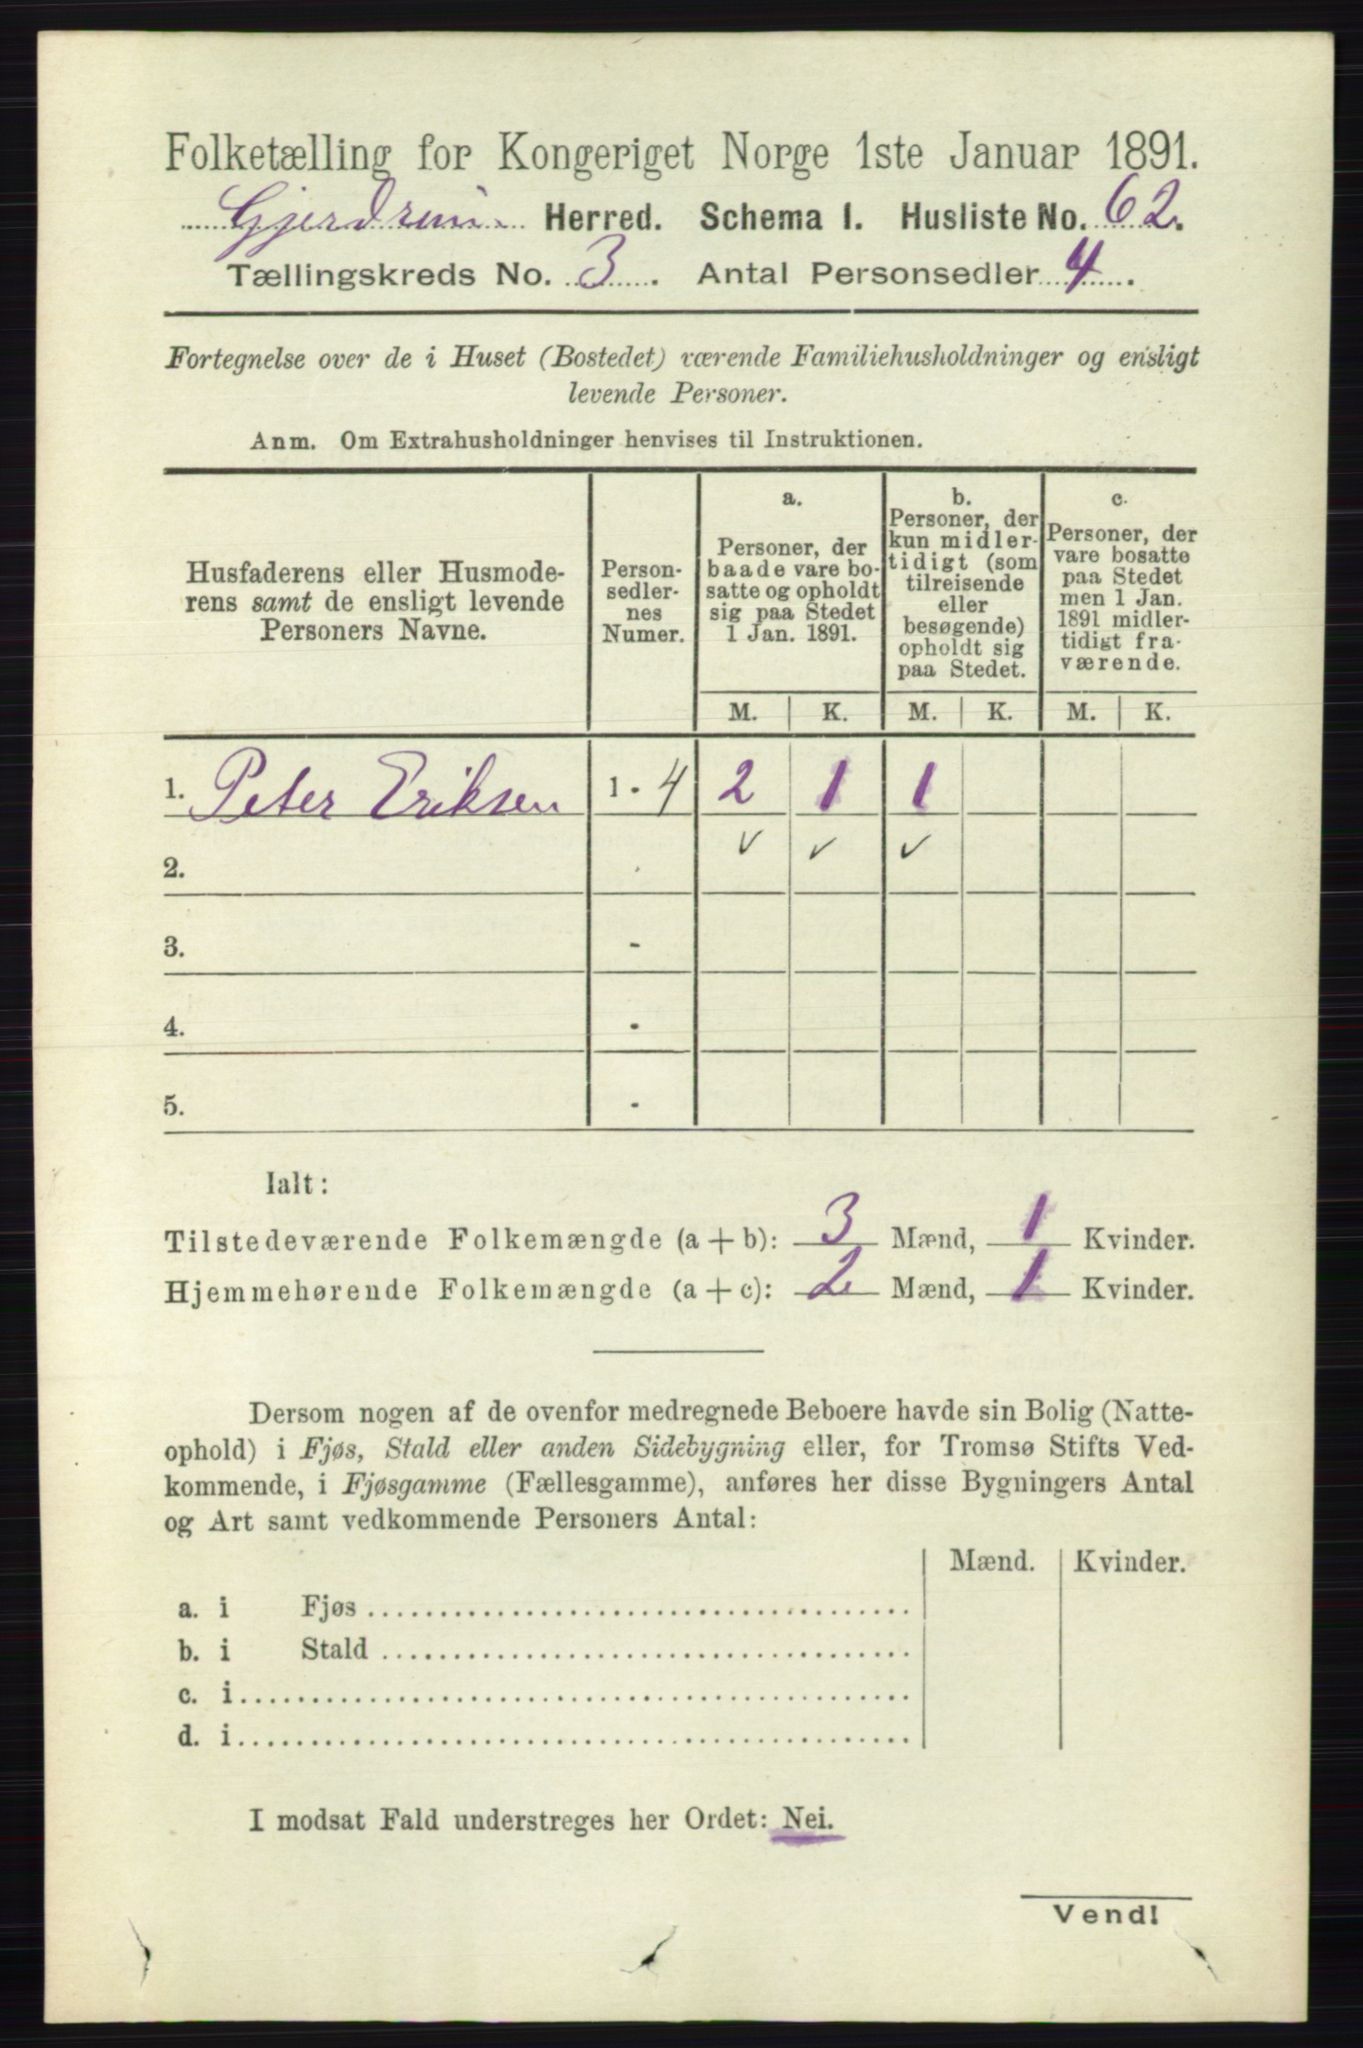 Folketælling for Kongeriget Norge 1ste Januar 1891.
Gjerdrum Herred. Schema I. Husliste No. 62.
Tællingskreds No. 3. Antal Personsedler 4.
Fortegnelse over de i Huset (Bostedet) værende Familiehusholdninger og ensligt
levende Personer.
Anm. Om Extrahusholdninger henvises til Instruktionen.
Husfaderens eller Husmode-
rens samt de ensligt levende
Personers Navne.
Person-
sedler-
nes
Numer.
a.
Personer, der
baade vare bo-
satte og opholdt
sig paa Stedet
1 Jan. 1891.
b.
Personer, der
kun midler-
tidigt (som
tilreisende
eller
besøgende)
opholdt sig
paa Stedet.
c.
Personer, der
vare bosatte
paa Stedet
men 1 Jan.
1891 midler-
tidigt fra-
værende.
M. K. M. K. M. K.
1. Peter Eriksen 1 - 4 2 1 1
2. ✓ ✓ ✓
3. -
4. -
5. -
Ialt:
Tilstedeværende Folkemængde (a + b): 3 Mænd, 1 Kvinder.
Hjemmehørende Folkemængde (a + c): 2 Mænd, 1 Kvinder.
Dersom nogen af de ovenfor medregnede Beboere havde sin Bolig (Natte-
ophold) i Fjøs, Stald eller anden Sidebygning eller, for Tromsø Stifts Ved-
kommende, i Fjøsgamme (Fællesgamme), anføres her disse Bygningers Antal
og Art samt vedkommende Personers Antal:
Mænd. Kvinder.
a. i Fjøs
b. i Stald
c. i
d. i
I modsat Fald understreges her Ordet: Nei.
Vend!